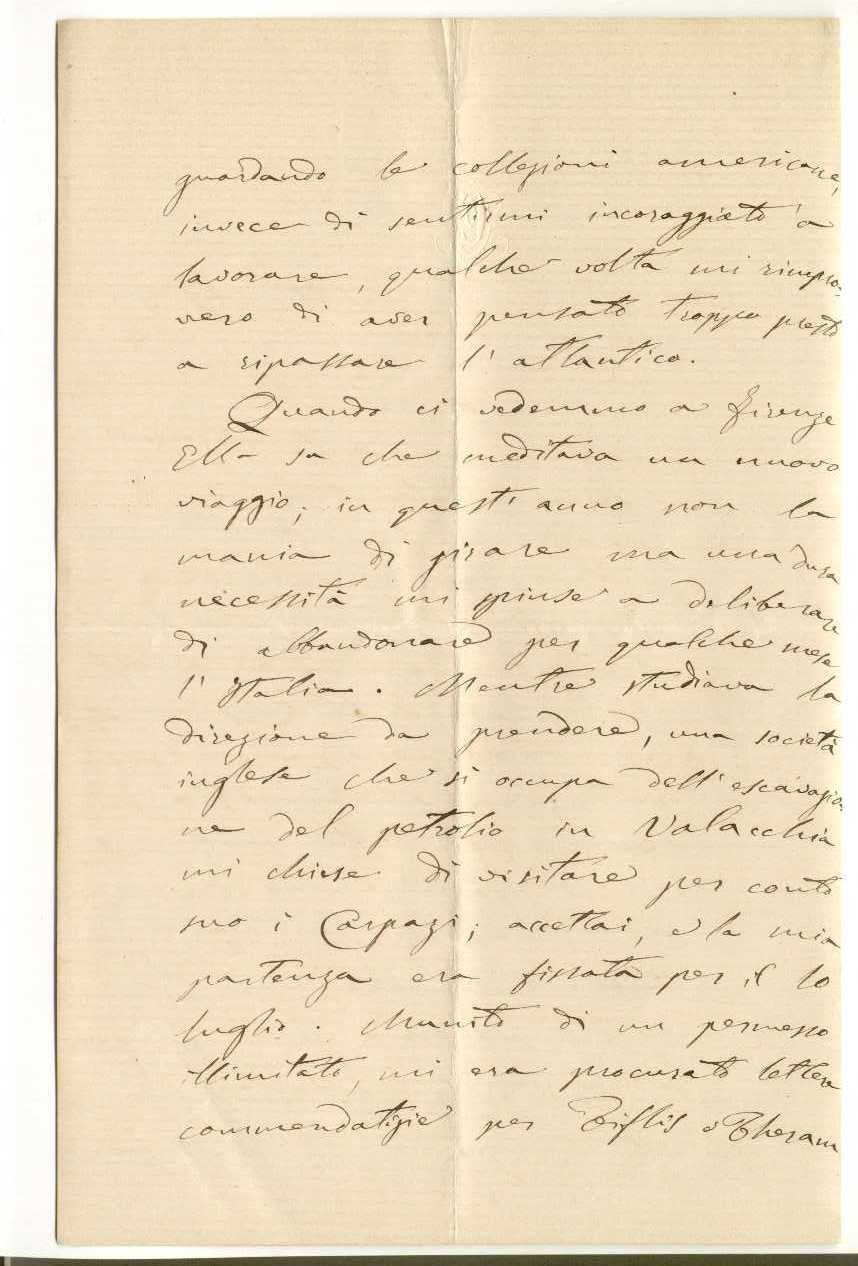 guardando le collezioni americane,
invece di sentirmi incoraggiato a
lavorare, qualche volta mi rimpro-
vero di aver pensato troppo presto
a ripassare l'atlantico.
Quando ci vedemmo a Firenze
Ella sa che meditava un nuovo
viaggio; in quest'anno non la
mania di girare ma una dura
necessità mi spinse a deliberare
di abbandonare per qualche mese
l'Italia. Mentre studiava la
direzione da prendere, una società
inglese che si occupa dell'escavazio
ne del petrolio in Valacchia
mi chiese di visitare per conto
suo i Carpazi; accettai, e la mia
partenza era fissata per il 10
luglio. Munito di un permesso
illimitato, mi era procurato lettere
commendatizie per Tiflis e Theram